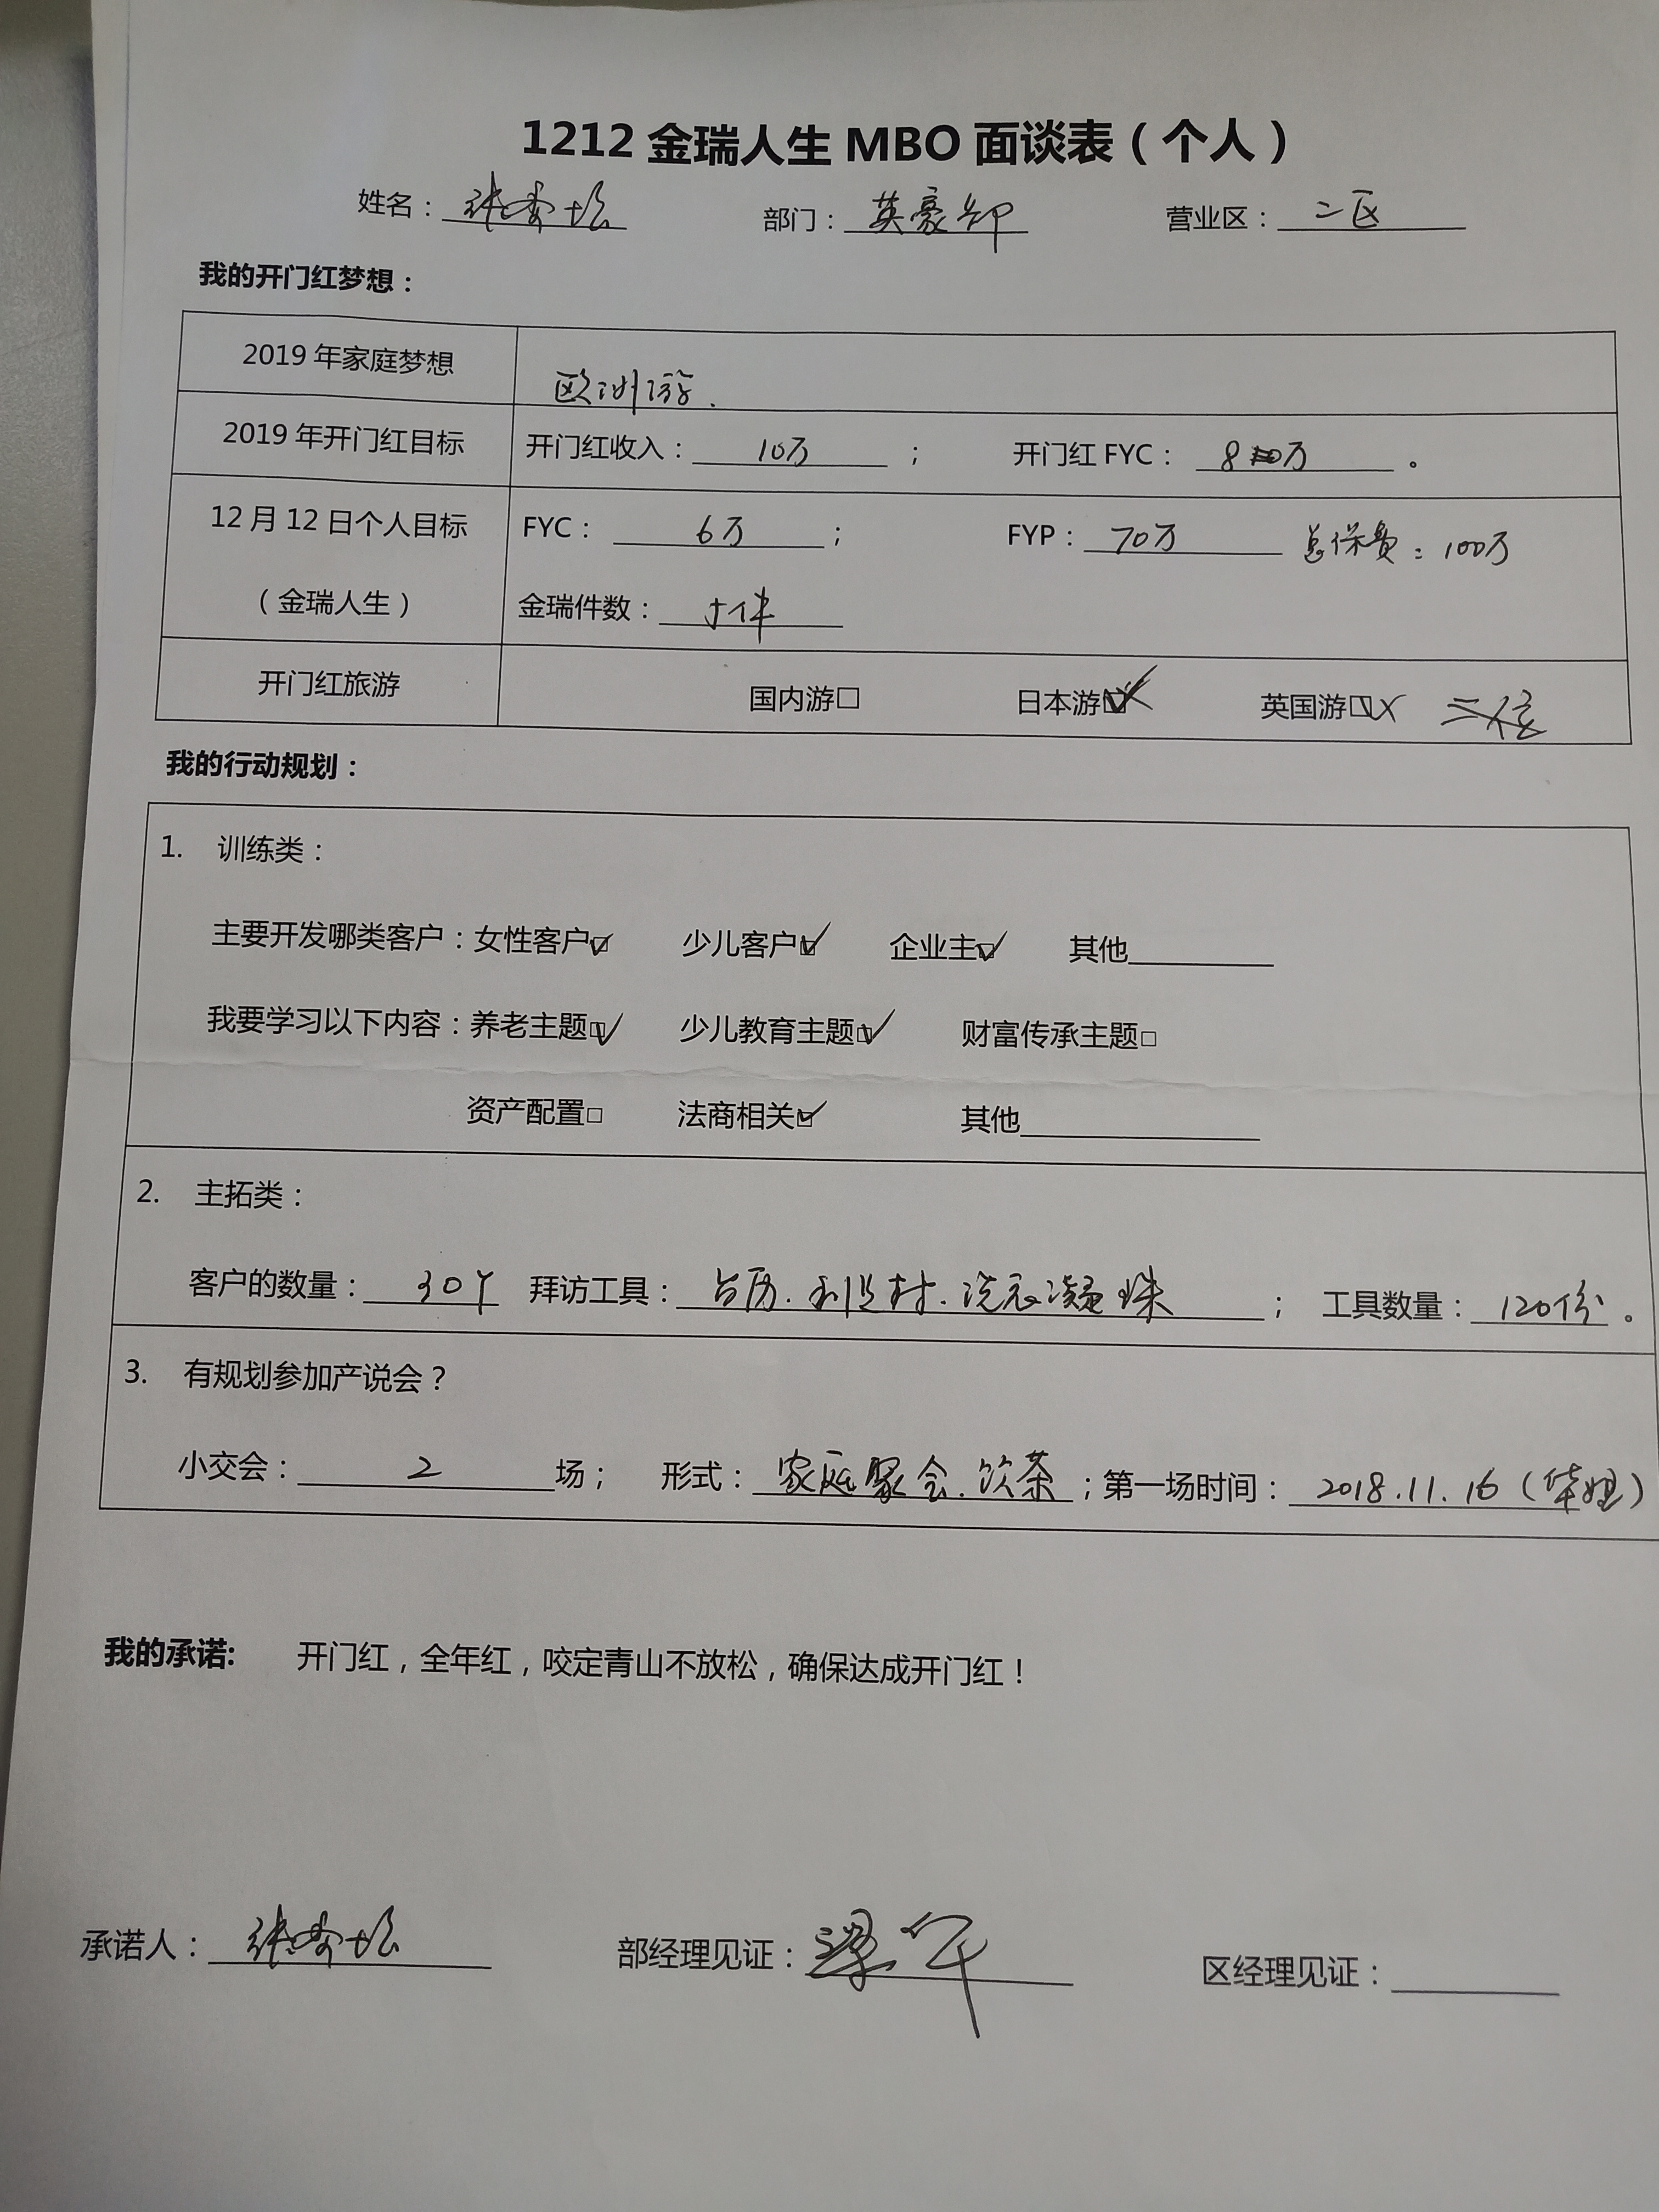 1212 金瑞人生 MBO 面谈表（个人）
姓名： 部门：英豪部 营业区：二区
我的开门红梦想：
2019 年家庭梦想 欧洲游.
2019 年开门红目标 开门红收入：10万； 开门红 FYC：8万。
12 月 12 日个人目标 FYC：6万； FYP：70万 总保费：100万
（金瑞人生） 金瑞件数：件
开门红旅游 国内游□ 日本游☑ 英国游□
我的行动规划：
1. 训练类：
主要开发哪类客户：女性客户☑ 少儿客户☑ 企业主☑ 其他
我要学习以下内容：养老主题☑ 少儿教育主题☑ 财富传承主题□
资产配置□ 法商相关☑ 其他
2. 主拓类：
客户的数量：30个 拜访工具：台历. 利是封. 洗衣凝珠； 工具数量：120份。
3. 有规划参加产说会？
小交会：2场； 形式：家庭聚会.饮茶；第一场时间：2018.11.16（华姐）
我的承诺: 开门红，全年红，咬定青山不放松，确保达成开门红！
承诺人： 部经理见证： 区经理见证：